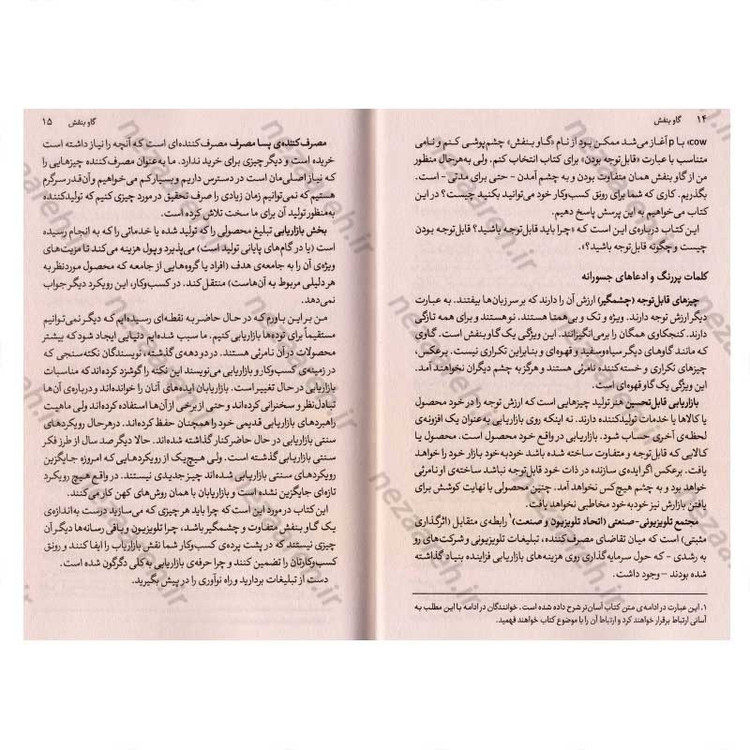 ۱۴ گاو بنفش
cow» با p آغاز می‌شد ممکن بود از نام «گاو بنفش» چشم‌پوشی کنم و نامی
متناسب با عبارت «قابل‌توجه بودن» برای کتاب انتخاب کنم. ولی به‌هرحال منظور
من از گاو بنفش همان متفاوت بودن و به چشم آمدن – حتی برای مدتی – است.
بگذریم. کاری که شما برای رونق کسب‌وکار خود می‌توانید بکنید چیست؟ در این
کتاب می‌خواهیم به این پرسش پاسخ دهیم.
این کتاب درباره‌ی این است که «چرا باید قابل‌توجه باشید؟ قابل‌توجه بودن
چیست و چگونه قابل‌توجه باشید؟».
کلمات پررنگ و ادعاهای جسورانه
چیزهای قابل‌توجه (چشمگیر) ارزش آن را دارند که بر سر زبان‌ها بیفتند. به عبارت
دیگر ارزش توجه دارند. ویژه و تک و بی‌همتا هستند. نو هستند و برای همه تازگی
دارند. کنجکاوی همگان را برمی‌انگیزانند. این ویژگی یک گاو بنفش است. گاوی
که مانند گاوهای دیگر سیاه‌وسفید و قهوه‌ای و بنابراین تکراری نیست. برعکس،
چیزهای تکراری و خسته‌کننده نامرئی هستند و هرگز به چشم دیگران نخواهند آمد.
این ویژگی یک گاو قهوه‌ای است.
بازاریابی قابل‌تحسین هنر تولید چیزهایی است که ارزش توجه را در خود محصول
یا کالاها یا خدمات تولیدکننده دارند. نه اینکه روی بازاریابی به‌عنوان یک افزونه‌ی
لحظه‌ی آخری حساب شود. بازاریابی در واقع خود محصول است. محصول یا
کالایی که قابل‌توجه و متفاوت ساخته شده باشد خودبه‌خود بازار را خواهد
یافت. برعکس اگر ایده‌ی سازنده در ذات خود قابل‌توجه نباشد ساخته‌ی او نامرئی
خواهد بود و به چشم هیچ‌کس نخواهد آمد. چنین محصولی با نهایت کوشش برای
یافتن بازارش نیز خودبه‌خود مخاطبی نخواهد یافت.
مجتمع تلویزیونی-صنعتی (اتحاد تلویزیون و صنعت)۱ رابطه‌ی متقابل (اثرگذاری
مثبتی) است که میان تقاضای مصرف‌کننده، تبلیغات تلویزیونی و شرکت‌های رو
به رشدی – که حول سرمایه‌گذاری روی هزینه‌های بازاریابی فزاینده بنیاد گذاشته
شده بودند – وجود داشت.
۱. این عبارت در ادامه‌ی متن کتاب آسان‌تر شرح داده شده است. خوانندگان در ادامه با این مطلب به
آسانی ارتباط برقرار خواهند کرد و ارتباط آن را با موضوع کتاب خواهند فهمید.
گاو بنفش ۱۵
مصرف‌کننده‌ی پسا مصرف مصرف‌کننده‌ای است که آنچه را نیاز داشته است
خریده است و دیگر چیزی برای خرید ندارد. ما به‌عنوان مصرف‌کننده چیزهایی را
که نیاز اصلی‌مان است در دسترس داریم و بسیار کم می‌خواهیم و آن‌قدر سرگرم
هستیم که نمی‌توانیم زمان زیادی را صرف تحقیق در مورد چیزی کنیم که تولیدکننده
به‌منظور تولید آن برای ما سخت تلاش کرده است.
بخش بازاریابی تبلیغ محصولی را که تولید شده یا خدماتی را که به انجام رسیده
است (یا در گام‌های پایانی تولید است) می‌پذیرد و پول هزینه می‌کند تا مزیت‌های
ویژه‌ی آن را به جامعه‌ی هدف (افراد یا گروه‌هایی از جامعه که محصول موردنظر به
هر دلیلی مربوط به آن‌هاست) منتقل کند. در کسب‌وکار، این رویکرد دیگر جواب
نمی‌دهد.
من بر این باورم که در حال حاضر به نقطه‌ای رسیده‌ایم که دیگر نمی‌توانیم
مستقیماً برای توده‌ها بازاریابی کنیم. ما سبب شده‌ایم دنیایی ایجاد شود که بیشتر
محصولات در آن نامرئی هستند. در دو دهه‌ی گذشته، نویسندگان نکته‌سنجی که
در زمینه‌ی کسب‌وکار و بازاریابی می‌نویسند این نکته را گوشزد کرده‌اند که مناسبات
بازاریابی در حال تغییر است. بازاریابان ایده‌های آنان را خوانده‌اند و درباره‌ی آن‌ها
تبادل‌نظر و سخنرانی کرده‌اند و حتی از برخی از آن‌ها استفاده کرده‌اند ولی ماهیت
راهبردهای بازاریابی قدیمی خود را همچنان حفظ کرده‌اند. درهرحال رویکردهای
سنتی بازاریابی در حال حاضر کنار گذاشته شده‌اند. حالا دیگر صد سال از طرز فکر
سنتی بازاریابی گذشته است. ولی هیچ‌یک از رویکردهایی که امروزه جایگزین
رویکردهای سنتی بازاریابی شده‌اند چیز جدیدی نیستند. در واقع هیچ رویکرد
تازه‌ای جایگزین نشده است و بازاریابان با همان روش‌های کهن کار می‌کنند.
این کتاب در مورد این است که چرا باید هر چیزی که می‌سازید درست به‌اندازه‌ی
یک گاو بنفش متفاوت و چشمگیر باشد، چرا تلویزیون و باقی رسانه‌ها دیگر آن
چیزی نیستند که در پشت پرده‌ی کسب‌وکار شما نقش بازاریاب را ایفا کنند و رونق
کسب‌وکارتان را تضمین کنند و چرا حرفه‌ی بازاریابی به‌کلی دگرگون شده است.
دست از تبلیغات بردارید و راه نوآوری را در پیش بگیرید.
nezaareh.ir